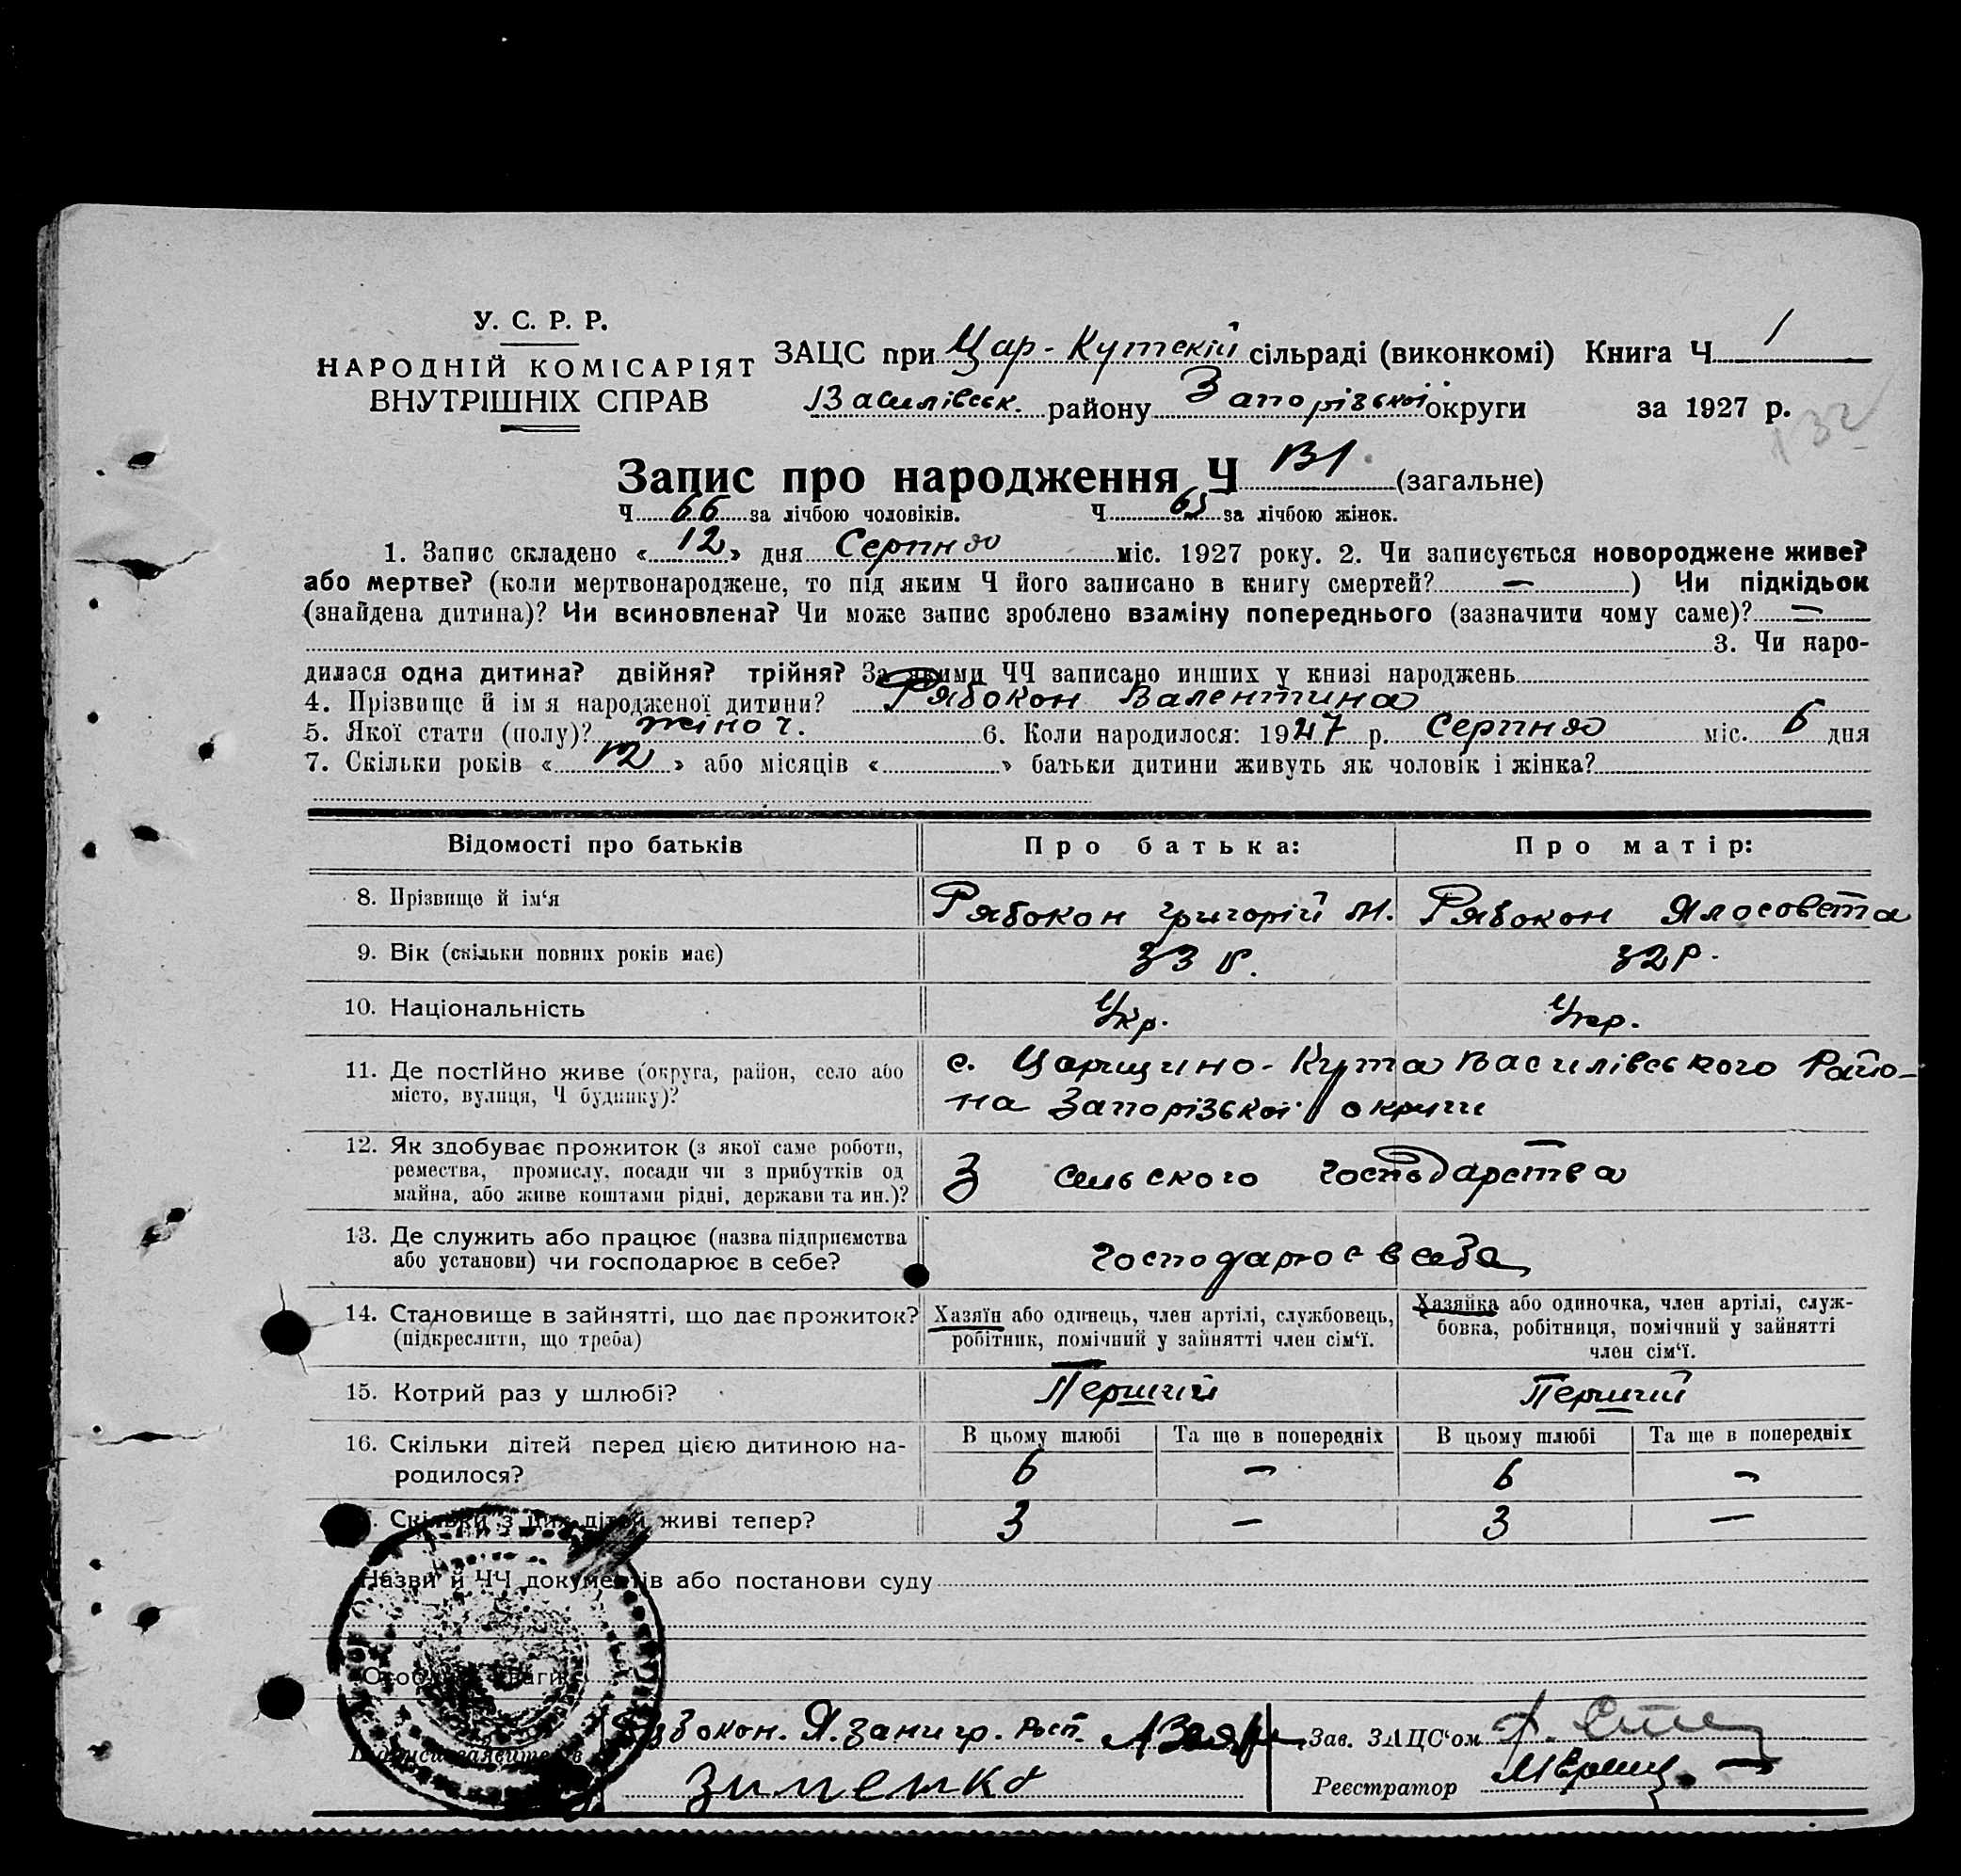 У. С. Р. Р.
НАРОДНІЙ КОМІСАРІЯТ
ВНУТРІШНІХ СПРАВ
ЗАЦС при Цар-Кутскій сільраді (виконкомі) Книга Ч 1
Василівськ. району Запорізької округи за 1927 р.
132
Запис про народження Ч 131. (загальне)
Ч 66 за лічбою чоловіків. Ч 65 за лічбою жінок.
1. Запис складено « 12 » дня Серпня міс. 1927 року. 2. Чи записується новороджене живе?
або мертве? (коли мертвонароджене, то під яким Ч його записано в книгу смертей? — ) Чи підкідьок
(знайдена дитина)? Чи всиновлена? Чи може запис зроблено взаміну попереднього (зазначити чому саме)? —
3. Чи наро-
дилася одна дитина? двійня? трійня? За якими ЧЧ записано инших у книзі народжень
4. Прізвище й імя народженої дитини? Рябокон Валентина
5. Якої стати (полу)? жіноч. 6. Коли народилося: 1927 р. Серпня міс. 6 дня
7. Скільки років « 12 » або місяців « » батьки дитини живуть як чоловік і жінка?
Відомості про батьків Про батька: Про матір:
8. Прізвище й ім‘я Рябокон Григорій М. Рябокон Ялосовета
9. Вік (скільки повних років має) 33 р. 32 р.
10. Національність Укр. Укр.
11. Де постійно живе (округа, район, село або
місто, вулиця, Ч будинку)?
с. Царицино-Кута Василівського Райо-
на Запорізької округи
12. Як здобуває прожиток (з якої саме роботи,
ремества, промислу, посади чи з прибутків од
майна, або живе коштами рідні, держави та ин.)?
З сельского господарства
13. Де служить або працює (назва підприємства
або установи) чи господарює в себе?
господарює в себе
14. Становище в зайнятті, що дає прожиток?
(підкреслити, що треба)
Хазяїн або одинець, член артілі, службовець,
робітник, помічний у зайнятті член сім‘ї.
Хазяйка або одиночка, член артілі, служ-
бовка, робітниця, помічний у зайнятті
член сім‘ї.
15. Котрий раз у шлюбі? Перший Перший
16. Скільки дітей перед цією дитиною на-
родилося?
В цьому шлюбі Та ще в попередніх В цьому шлюбі Та ще в попередніх
6 — 6 —
Скільки з цих дітей живі тепер? 3 — 3 —
Назви й ЧЧ документів або постанови суду
Особливі уваги
Підписи заявителів Рябокон. Я. за ни гр. росп.
Зименко
Зав. ЗАЦС‘ом
Реєстратор